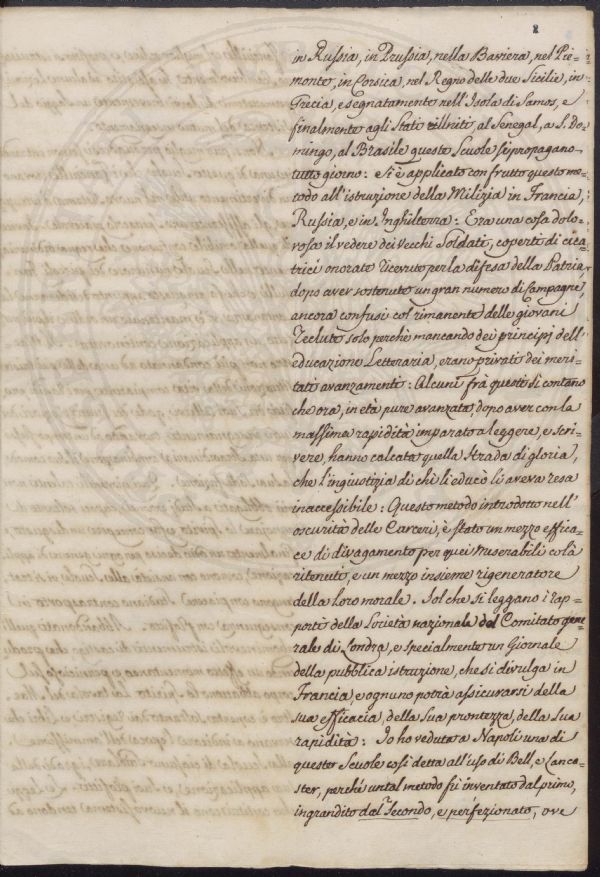 8
in Russia, in Prussia, nella Baviera, nel Pie=
monte, in Corsica, nel Regno delle due Sicilie, in
Grecia, e segnatamente nell'Isola di Samos, e
finalmente agli Stati Uniti al Senegal, a S. Do=
mingo, al Brasile queste Scuole si propagano
tutto giorno: e si è applicato con frutto questo me=
todo all'istruzione della Milizia in Francia,
Russia, e in Inghilterra: Era una cosa dolo=
rosa il vedere dei vecchi Soldati, coperti di cica=
trici onorate ricevute per la difesa della Patria,
dopo aver sostenuto un gran numero di Campagne,
ancora confusi col rimanente delle giovani
reclute solo perchè mancando dei principj dell'
educazione Letteraria, erano privati dei meri=
tati avanzamenti: Alcuni frà questi si contano
che ora, in età pure avanzata, dopo aver con la
massima rapidità imparato a leggere, e scri=
vere, hanno calcata quella Strada di gloria,
che l'ingiustizia di chi li educò li aveva resa
inaccessibile: Questo metodo introdotto nell'
oscurità delle Carceri, è stato un mezzo effica=
ce di divagamento per quei miserabili colà
ritenuti, e un mezzo insieme rigeneratore
della loro morale. Sol che si leggano i rap=
porti della Società nazionale del Comitato gene=
rale di Londra, e specialmente un Giornale
della pubblica istruzione, che si divulga in
Francia, e ognuno potrà assicurarsi della
sua efficacia, della sua prontezza, della sua
rapidità: Io ho veduta a Napoli una di
queste Scuole così detta all'uso di Bell, e Lanca=
ster, perchè un tal metodo fù inventato dal primo,
ingrandito dal Secondo, e perfezionato, ove